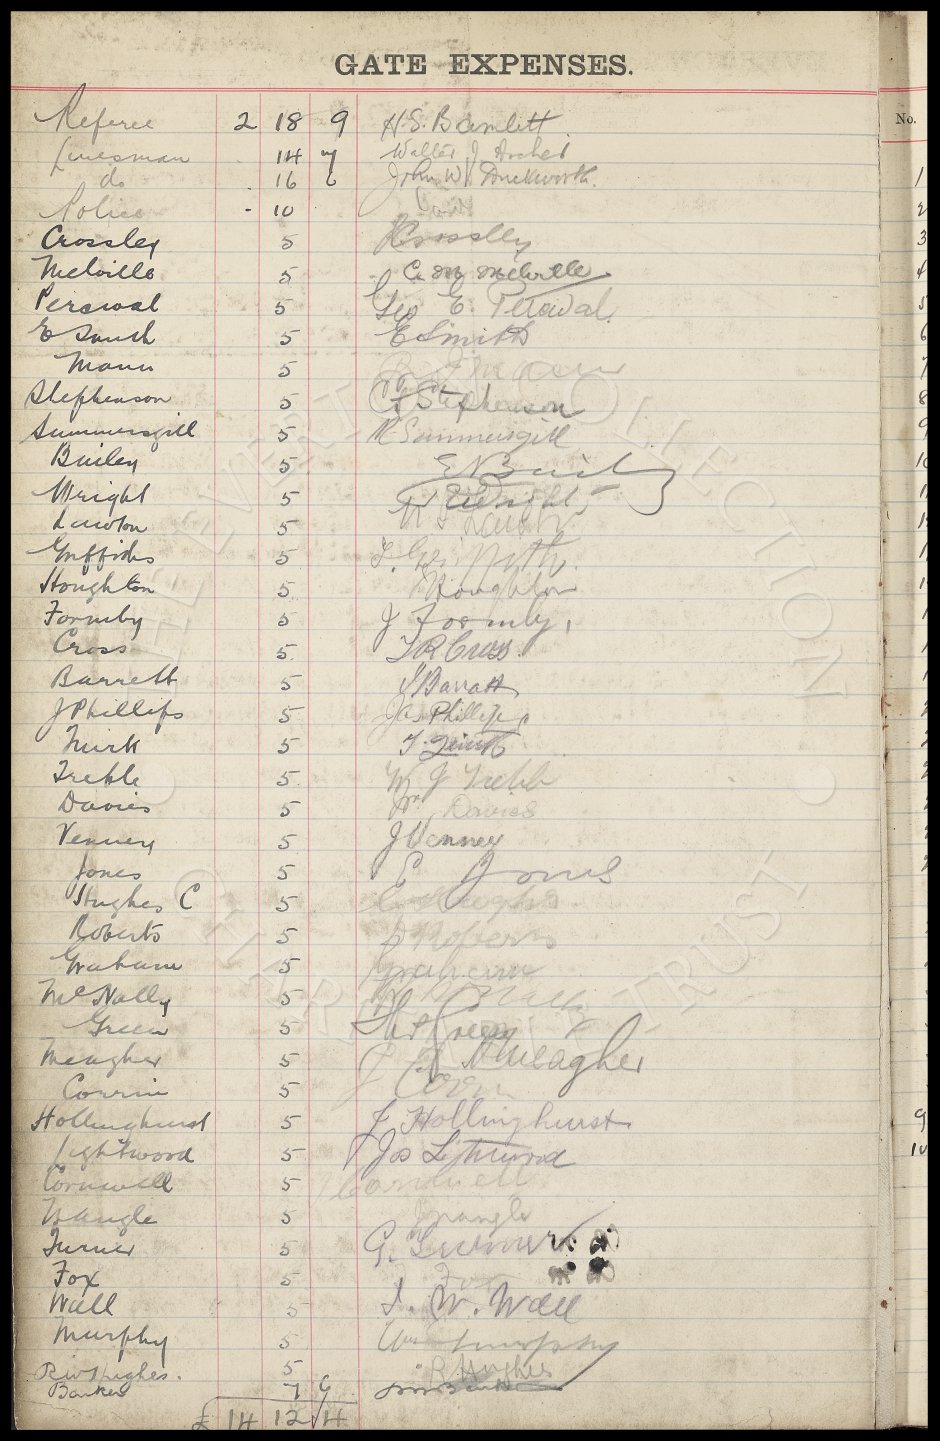 GATE EXPENSES.
No.
Referee 2 18 9 H.S. Bamlett
Linesman . 14 7 Walter J Archel
do . 16 6 John W Duckworth.
Police - 10
Crossley 5 Crosslly
Melville 5 C. M Melville
Percival 5 Geo E. Percival.
E Smith 5 E Smith
Mann 5
Stephenson 5 C Stephenson
Summersgill 5 R Summersgill
Bailey 5 E N Baily
Wright 5 Wright
Lawton 5
Griffiths 5 T. Griffith.
Houghton 5 Houghton
Formby 5 J Formby,
Cross 5 T R Cross.
Barrett 5 Barratt
J Phillips 5 Jas Phillips
Quirk 5 T. Quirk
Treble 5 W J Trebb
Davies 5 Wm Davies
Venney 5 J Venney
Jones 5 E Jones
Hughes C 5 C Hughes
Roberts 5 Roberts
Graham 5 Graham
McNally 5
Green 5 Thos Green
Meagher 5 Meagher
Corrin 5
Hollinghurst 5 J Hollinghurst
Lightwood 5 Jos Lightwood
Cornwell 5
Wrangle 5 Wrangle
Turner 5 G. Turner
Fox 5 Fox
Wall 5 J. W. Wall
Murphy 5 Wm Murphy
Hughes. 5 R Hughes
Banker 7 6
£ 14 12 4
EVERTON COLLECTION
CHARITABLE TRUST
1
2
3
4
5
6
7
8
9
10
9
10